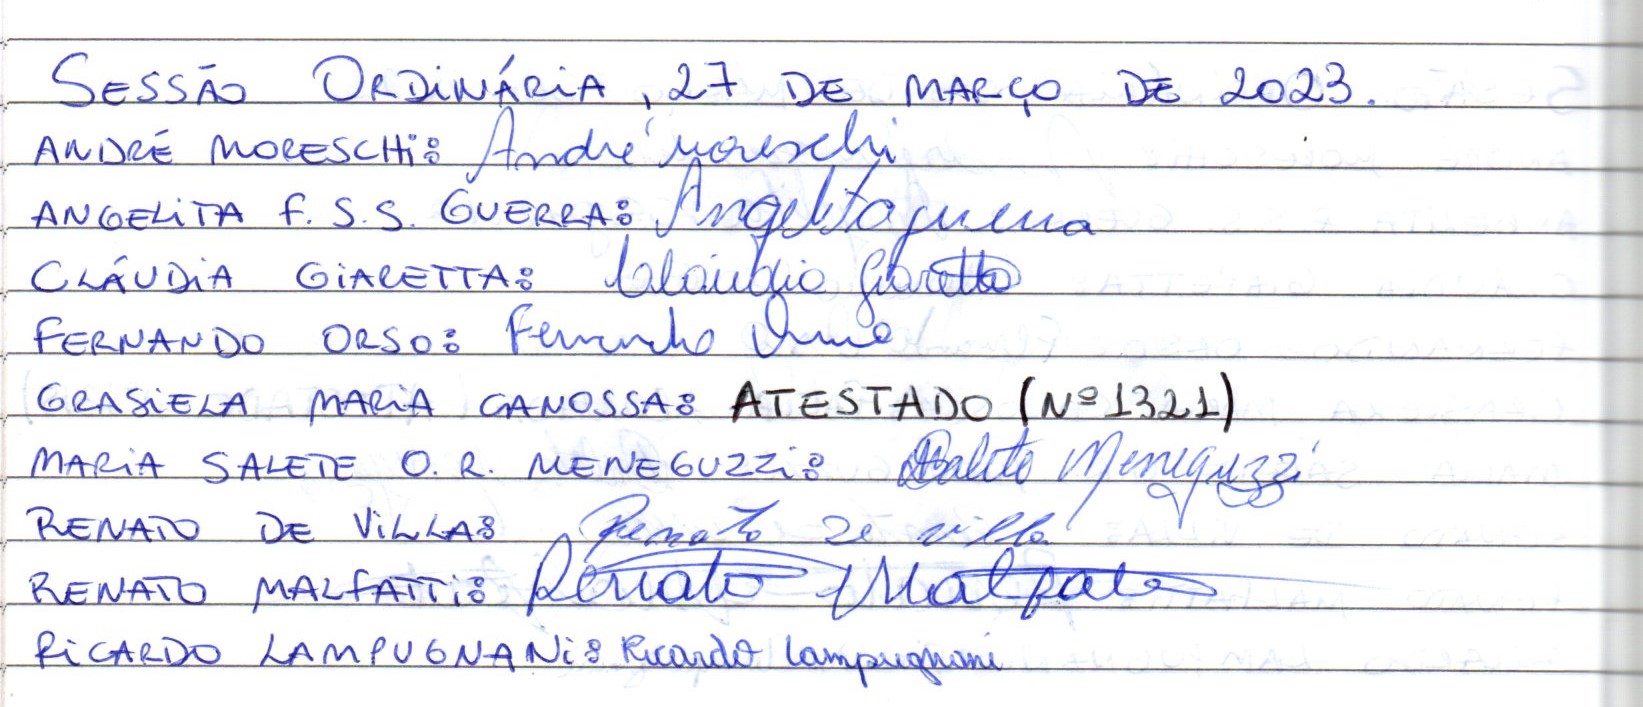 SESSÃO ORDINÁRIA, 27 DE MARÇO DE 2023.
ANDRÉ MORESCHI: André Moreschi
ANGELITA F. S. S. GUERRA: Angelita Guerra
CLÁUDIA GIARETTA: Claudia Giaretta
FERNANDO ORSO: Fernando Orso
GRASIELA MARIA CANOSSA: ATESTADO (Nº 1321)
MARIA SALETE O. R. MENEGUZZI: Salete Meneguzzi
RENATO DE VILLA: Renato De Villa
RENATO MALFATTI: Renato Malfatti
RICARDO LAMPUGNANI: Ricardo Lampugnani